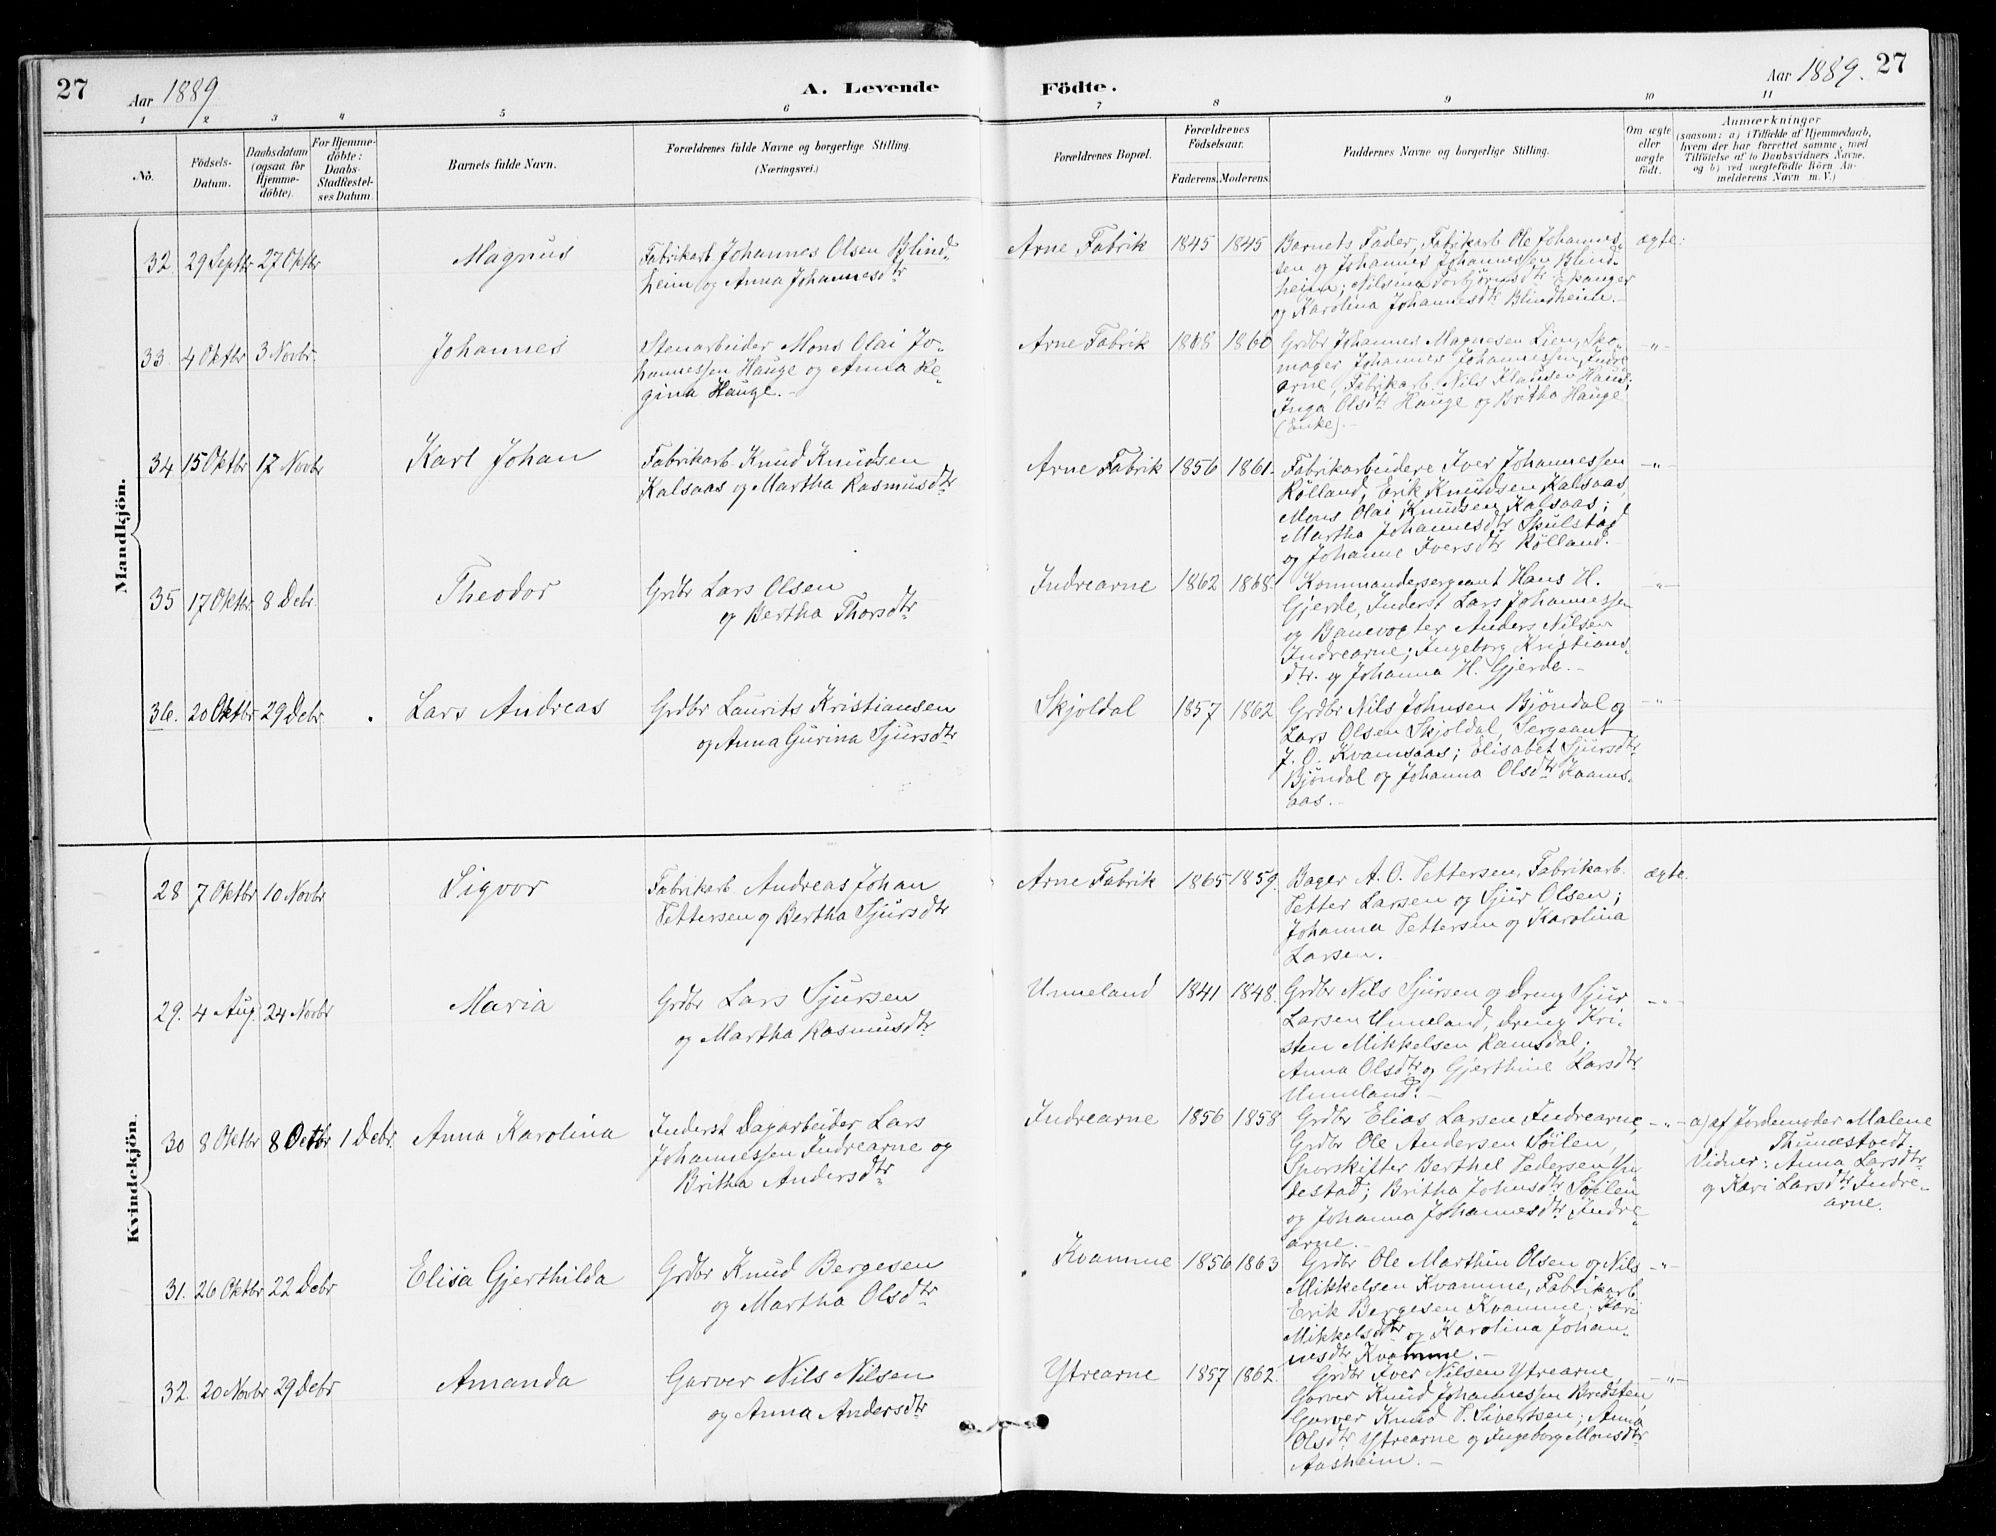 27
Aar 1889
A. Levende
Födte.
Aar 1889.
27
1 2 3 4 5 6 7 8 9 10 11
No.
Födsels-
Datum.
Daabsdatum
(ogsaa for
Hjemme-
döbte).
For Hjemme-
döbte:
Daabs-
Stadfæstel-
ses Datum.
Barnets fulde Navn.
Forældrenes fulde Navne og borgerlige Stilling.
(Næringsvei.)
Forældrenes Bopæl.
Forældrenes
Födselsaar.
Faderens. Moderens.
Faddernes Navne og borgerlige Stilling.
Om ægte
eller
uægte
födt.
Anmærkninger
(saasom: a) i Tilfælde af Hjemmedaab,
hvem der har forrettet samme, med
Tilföielse af to Daabsvidners Navne,
og b) ved uægtefödte Börn An-
melderens Navn m. V.)
Mandkjön.
32 29 Septbr 27 Oktbr
Magnus
Fabrikarb Johannes Olsen Blind-
heim og Anna Johannesdtr
Arne Fabrik 1845 1845
Barnets Fader, Fabrikarb Ole Johannes-
sen og Johannes Johannessen Blind-
heim; Nilsina Torbjørnsdtr Espanger
og Karolina Johannesdtr Blindheim.-
ægte:
33. 4 Oktbr 3 Novbr.
Johannes
Stenarbeider Mons Olai Jo-
hannessen Hauge og Anna Re-
gina Hauge.-
Arne Fabrik 1868 1860
Grdbr Johannes Magnesen Lien, Sko-
mager Johannes Johannessen, Indre
arne, Fabrikarb. Nils Hauge,
Inga Olsdtr Hauge og Britha Hauge
(Enke).-
-"-
34 15 Oktbr 17 Novbr
Karl Johan
Fabrikarb Knud Knudsen
Kalsaas og Martha Rasmusdtr
Arne Fabrik 1856 1861.
Fabrikarbeidere Iver Johannessen
Rølland, Erik Knudsen Kalsaas,
Mons Olai Knudsen Kalsaas;
Martha Johannesdtr Skulstad
og Johanne Iversdtr Rølland.-
-"-
35 17 Oktbr. 8 Debr.
Theodor
Grdbr Lars Olsen
og Bertha Thorsdtr
Indrearne 1862 1868.
Kommandersergeant Hans H.
Gjerde, Inderst Lars Johannessen
og Banevogter Anders Nilsen
Indrearne; Ingeborg Kristians-
dtr. og Johanna H. Gjerde.-
-"-
36. 20 Oktbr 29 Debr.
Lars Andreas
Grdbr Laurits Kristiansen
og Anna Gurina Sjursdtr
Skjoldal 1857 1862
Grdbr Nils Johnsen Bjøndal og
Lars Olsen Skjoldal, Sergeant
J. O. Kvamsaas; Elisabet Sjursdtr
Bjøndal og Johanna Olsdtr Kvams-
aas.-
-"-
Kvindekjön.
28 7 Oktbr 10 Novbr
Sigvor
Fabrikarb Andreas Johan
Pettersen og Bertha Sjursdtr
Arne Fabrik 1865 1859.
Bager A. O. Pettersen, Fabrikarb.
Petter Larsen og Sjur Olsen;
Johanna Pettersen og Karolina
Larsen.
ægte.
29. 4 Aug. 24 Novbr
Maria
Grdbr Lars Sjursen
og Martha Rasmusdtr
Unneland 1841 1848.
Grdbr Nils Sjursen og Dreng Sjur
Larsen Unneland, Dreng Kri-
sten Mikkelsen Ramsdal;
Anna Olsdtr og Gjerthine Larsdtr
Unneland.-
-"-
30 8 Oktbr 8 Octbr 1 Debr.
Anna Karolina
Inderst Dagarbeider Lars
Johannessen Indrearne og
Britha Andersdtr
Indrearne 1856 1858
Grdbr Elias Larsen Indrearne,
Grdbr Ole Andersen Søilen,
Sporskifter Berthel Pedersen Yn-
destad; Britha Johnsdtr Søilen
og Johanna Johannesdtr Indre-
arne.-
-"-
a) af Jordemoder Malene
Thunestvedt.
Vidner: Anna Larsdtr
og Kari Larsdtr Indre-
arne.
31. 26 Oktbr 22 Debr
Elisa Gjerthilda
Grdbr Knud Bergesen
og Martha Olsdtr
Kvamme 1856 1863
Grdbr Ole Marthin Olsen og Nils
Mikkelsen Kvamme, Fabrikarb.
Erik Bergesen Kvamme; Kari
Mikkelsdtr og Karolina Johan-
nesdtr Kvamme.-
-"-
32. 20 Novbr 29 Debr
Amanda
Garver Nils Nilsen
og Anna Andersdtr
Ytrearne 1857 1862.
Grdbr Iver Nilsen Ytrearne,
Garver Knud Johannessen Bredsten,
Garver Knud S. Sivertsen; Anna
Olsdtr Ytrearne og Ingeborg Monsdtr
Aasheim.-
-"-